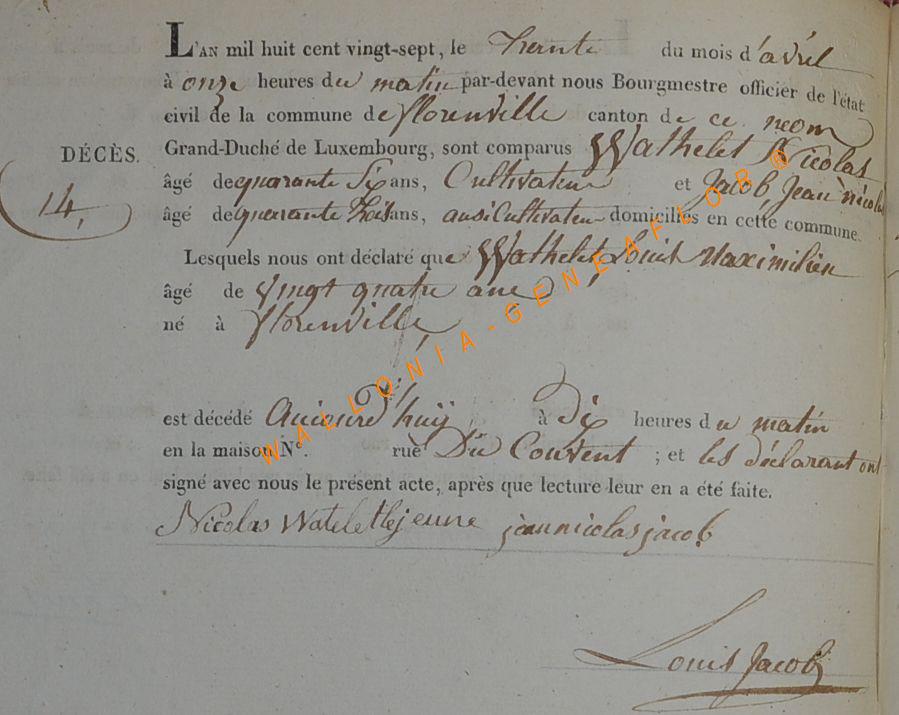 L'AN mil huit cent vingt-sept, le trente du mois d'avril
à onze heures du matin par-devant nous Bourgmestre officier de l'état
civil de la commune de florenville canton de ce nom
DÉCÈS.
Grand-Duché de Luxembourg, sont comparus Wathelet Nicolas
14,
âgé de quarante Six ans, Cultivateur et Jacob Jean nicolas
âgé de quarante trois ans, ausi Cultivateur domiciliés en cette commune.
Lesquels nous ont déclaré que Wathelet Louis Maximilien
âgé de Vingt quatre ans
né à florenville
est décédé Aujourd'huy à dix heures du matin
en la maison N°. rue Du Couvent ; et les déclarant ont
signé avec nous le présent acte, après que lecture leur en a été faite.
Nicolas Watelet lejeune jean nicolas jacob
Louis Jacob
WALLONIA-GENEAFLOB ®